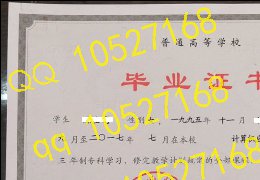 QQ 10527168
普通高等学校
毕业证书
qq 10527168
学生 性别 一九九五年十一月
九月至二〇一七年 七月在本校 计算
三年制专科学习，修完教学计划规定的全部课程
qq 10527168